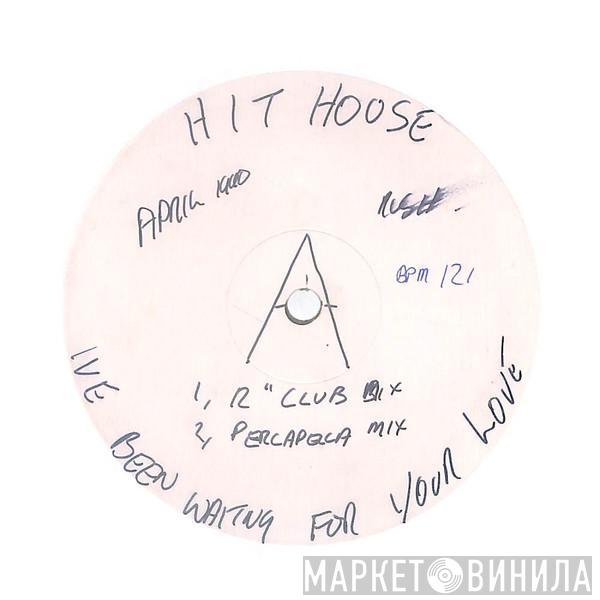 HIT HOUSE
APRIL 1990
RUSH.
BPM 121
A
1, 12" CLUB MIX
2, PERCAPELLA MIX
IVE BEEN WAITNG FOR YOUR LOVE
МАРКЕТ ВИНИЛА